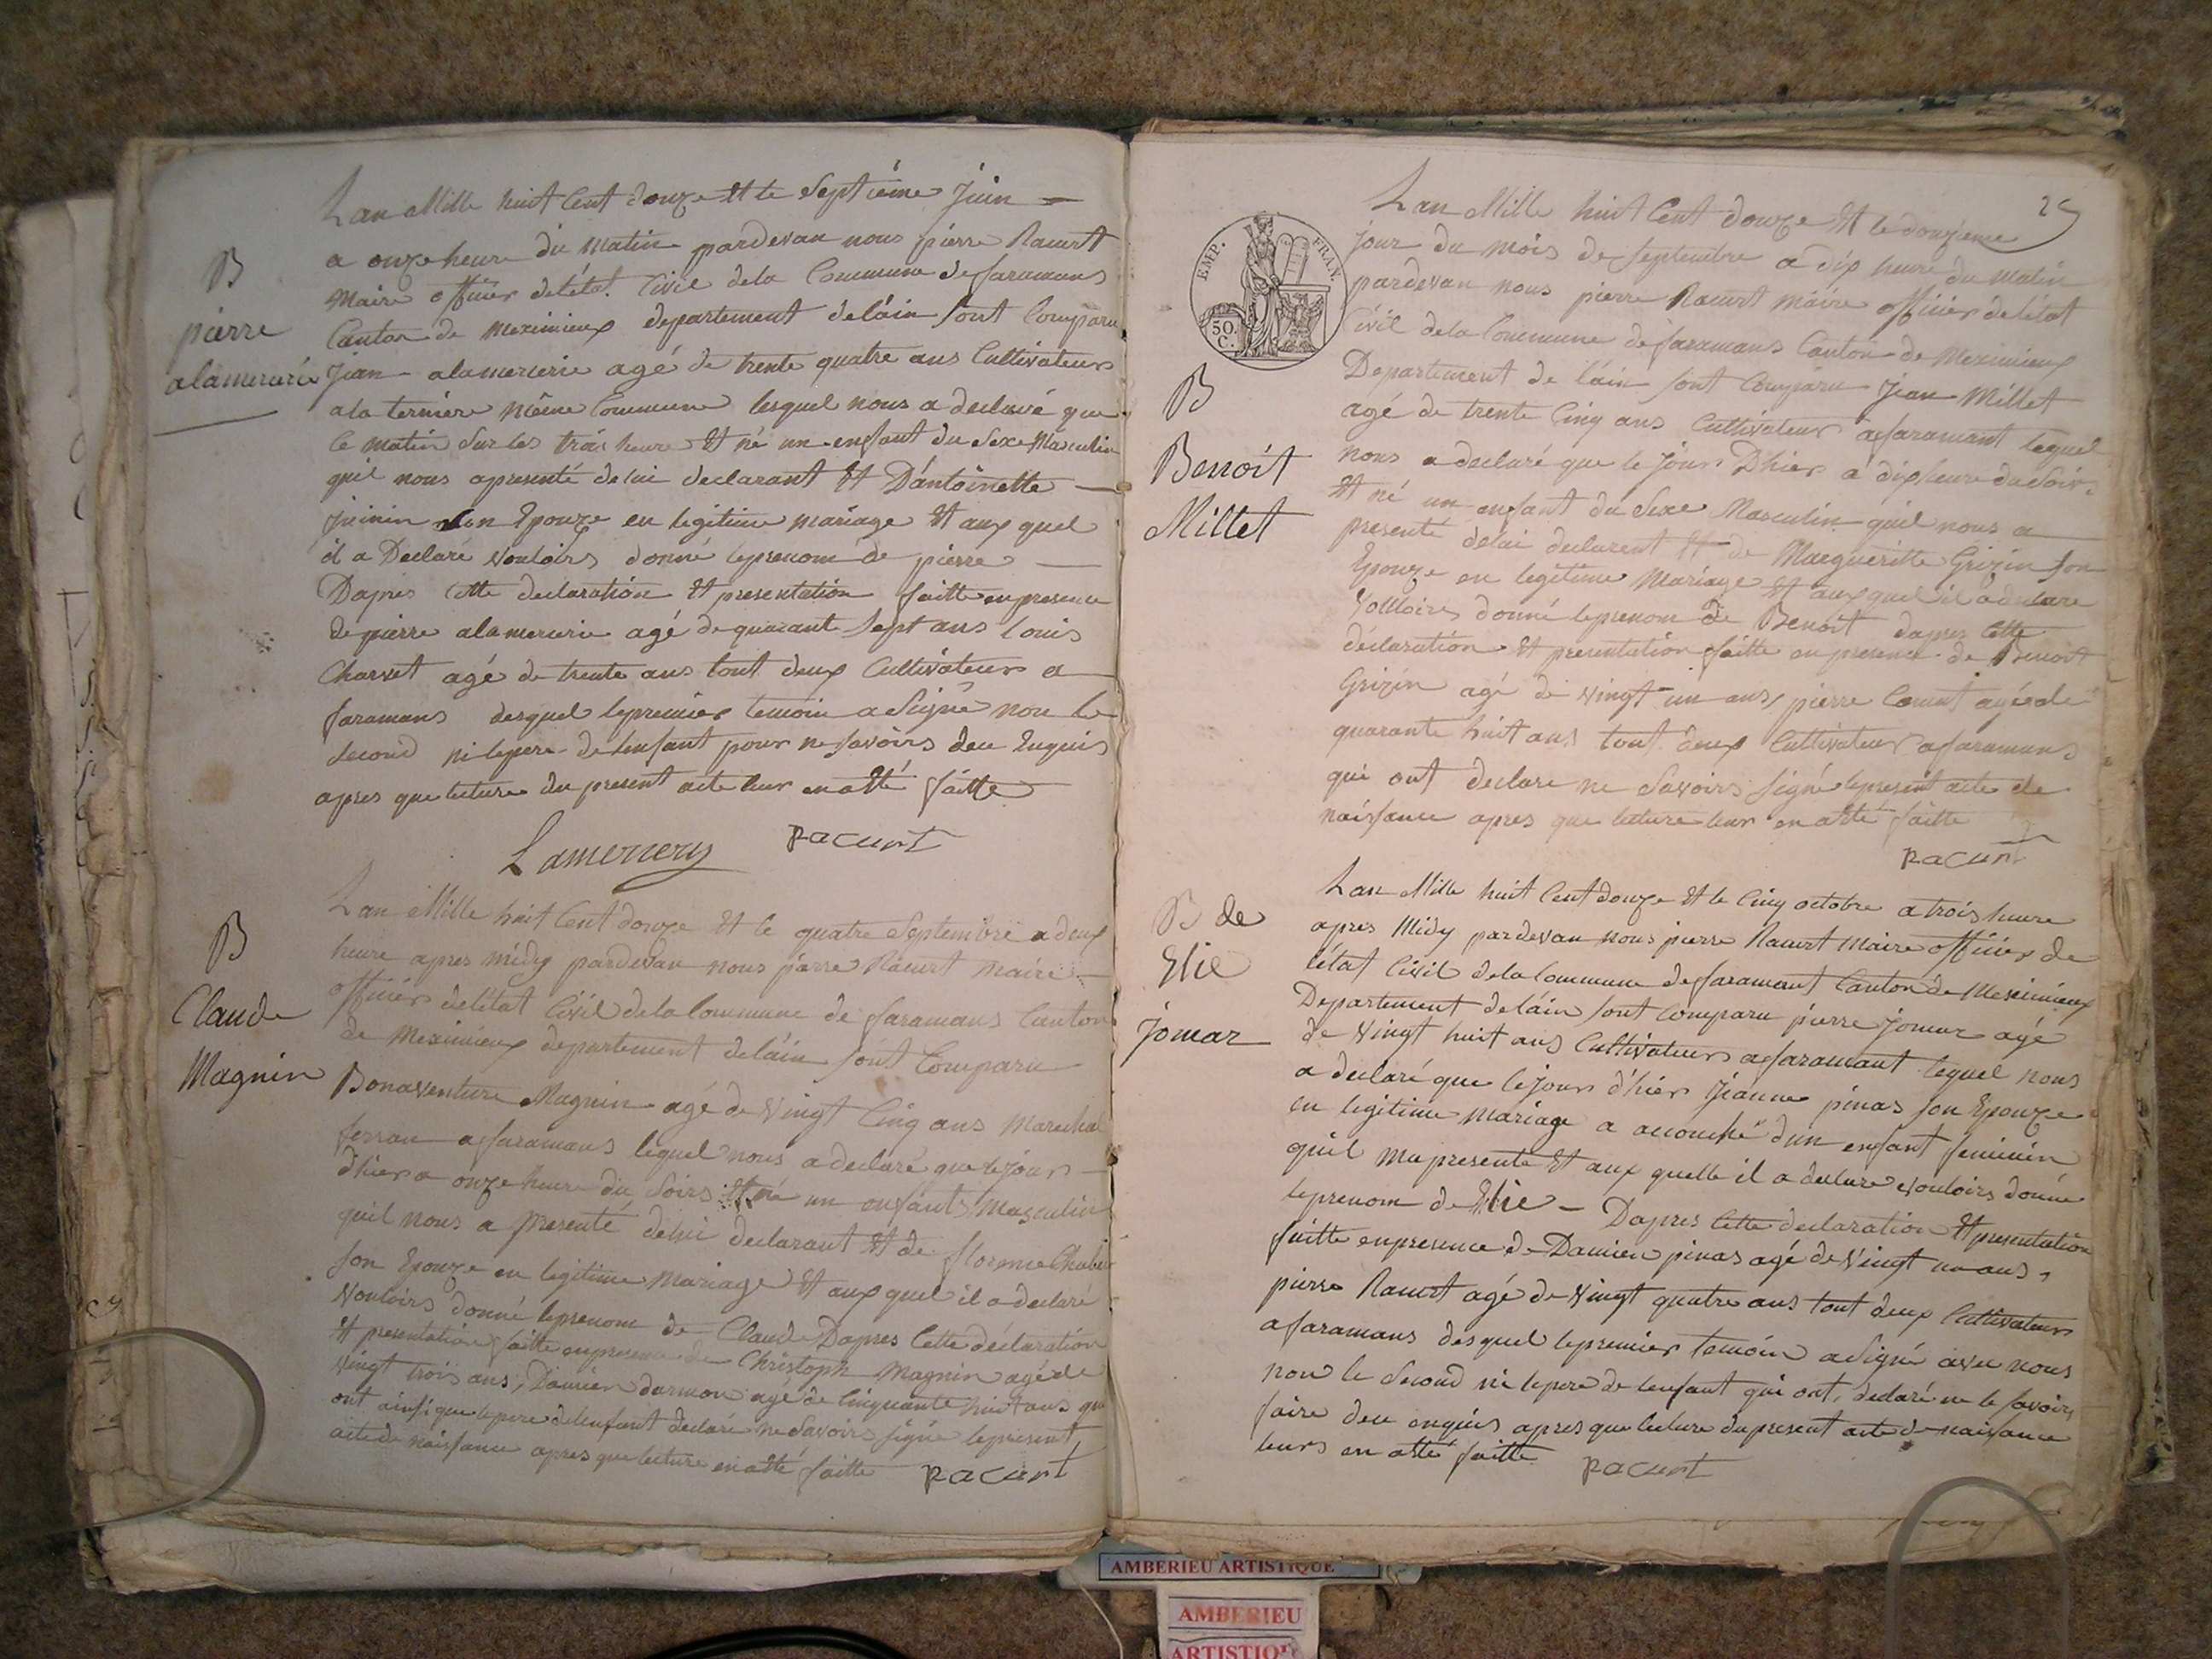 Lan Mille huit Cent douze Et le Septième Juin
a onze heure du matin pardevan nous pierre Racurt
Maire officier deletat Civil dela Commune de faramans
Canton de meximieux departement delain sont Comparu
B
pierre
alamercerie
Jean alamercerie agé de trente quatre ans Cultivateur
ala ternière même Commune lesquel nous a declaré que
le matin Sur les trois heure Et né un enfant du Sexe Masculin
quil nous apresenté de lui declarant Et Dantoinette
juinin Son Epouze en legitime mariage Et aux quel
il a Declaré vouloirs donné leprenom de pierre
Dapres Cette declaration Et presentation faitte en presence
de pierre alamercerie agé de quarant Sept ans louis
Charvet agé de trente ans tout deux Cultivateur a
faramans desquel lepremier temoin a Signé non le
Second ni lepere de lenfant pour ne Savoirs deu Enquis
apres que lecture du present acte leur en atté faitte
Lamercery racurt
B
Claude
Magnin
Lan Mille huit Cent douze Et le quatre Septembre a deux
heure apres midy pardevan nous pierre Racurt maire
officier deletat Civil dela Commune de faramans Canton
de Meximieux departement delain sont Comparu
Bonaventure Magnin agé de vingt Cinq ans Marechal
ferran a faramans lequel nous a declaré que lejour
dhier a onze heure du Soirs Et né un enfant Masculin
quil nous a presenté delui declarant Et de florence
son Epouze en legitime Mariage Et aux quel il a declaré
vouloirs donné leprenom de Claude Dapres Cette declaration
Et presentation faitte enpresence de Christoph Magnin agé de
vingt trois ans, Damien darmon agé de Cinquante huit ans qui
ont ainsi que lepere delenfant declaré ne Savoirs signé lepresent
acte de naissance apres que lecture en atté faitte racurt
25
EMP. FRAN.
50. C.
Lan Mille huit Cent douze Et le douzieme
jour du mois de Septembre a dix heure du matin
pardevan nous pierre Racurt maire officier deletat
Civil dela Commune de faramans Canton de Meximieux
Departement de lain sont Comparu Jean Millet
B
Benoit
Millet
agé de trente Cinq ans Cultivateur afaramant lequel
nous a declaré que le jour Dhier a dix heure du Soir
Et né un enfant du Sexe Masculin quil nous a
presenté delui declarent Et de Marguerite Grizin son
Epouze en legitime Mariage Et aux quel il a declare
vouloirs donné leprenom de Benoit dapres Cette
declaration Et presentation faitte en presence de Benoit
Grizin agé de vingt un ans pierre agé de
quarante huit ans tout deux Cultivateur afaramans
qui ont declare ne Savoirs signé lepresent acte de
naissance apres que lecture leur en atté faitte
racurt
B de
Elie
jomar
Lan Mille huit Cent douze Et le Cinq octobre a trois heure
apres Midy pardevan nous pierre Racurt Maire officier de
létat Civil dela Commune de faramant Canton de Meximieux
Departement delain sont Comparu pierre jomar agé
de vingt huit ans Cultivateur afaramant lequel nous
a declaré que lejour d'hier jeanne pinas son Epouze
en legitime mariage a accouché dun enfant feminin
quil ma presenté Et aux quelle il a declaré vouloirs donné
leprenom de Elie – Dapres Cette declaration Et presentation
faitte enpresence de Damien pinas agé de vingt un ans,
pierre Racurt agé de vingt quatre ans tout deux Cultivateur
afaramans desquel lepremier temoin a Signé avec nous
non le Second ni lepere de lenfant qui ont declaré ne le Savoir
faire deu enquis apres que lecture du present acte de naissance
leurs en atté faitte racurt
AMBERIEU ARTISTIQUE
AMBERIEU
ARTISTIQUE